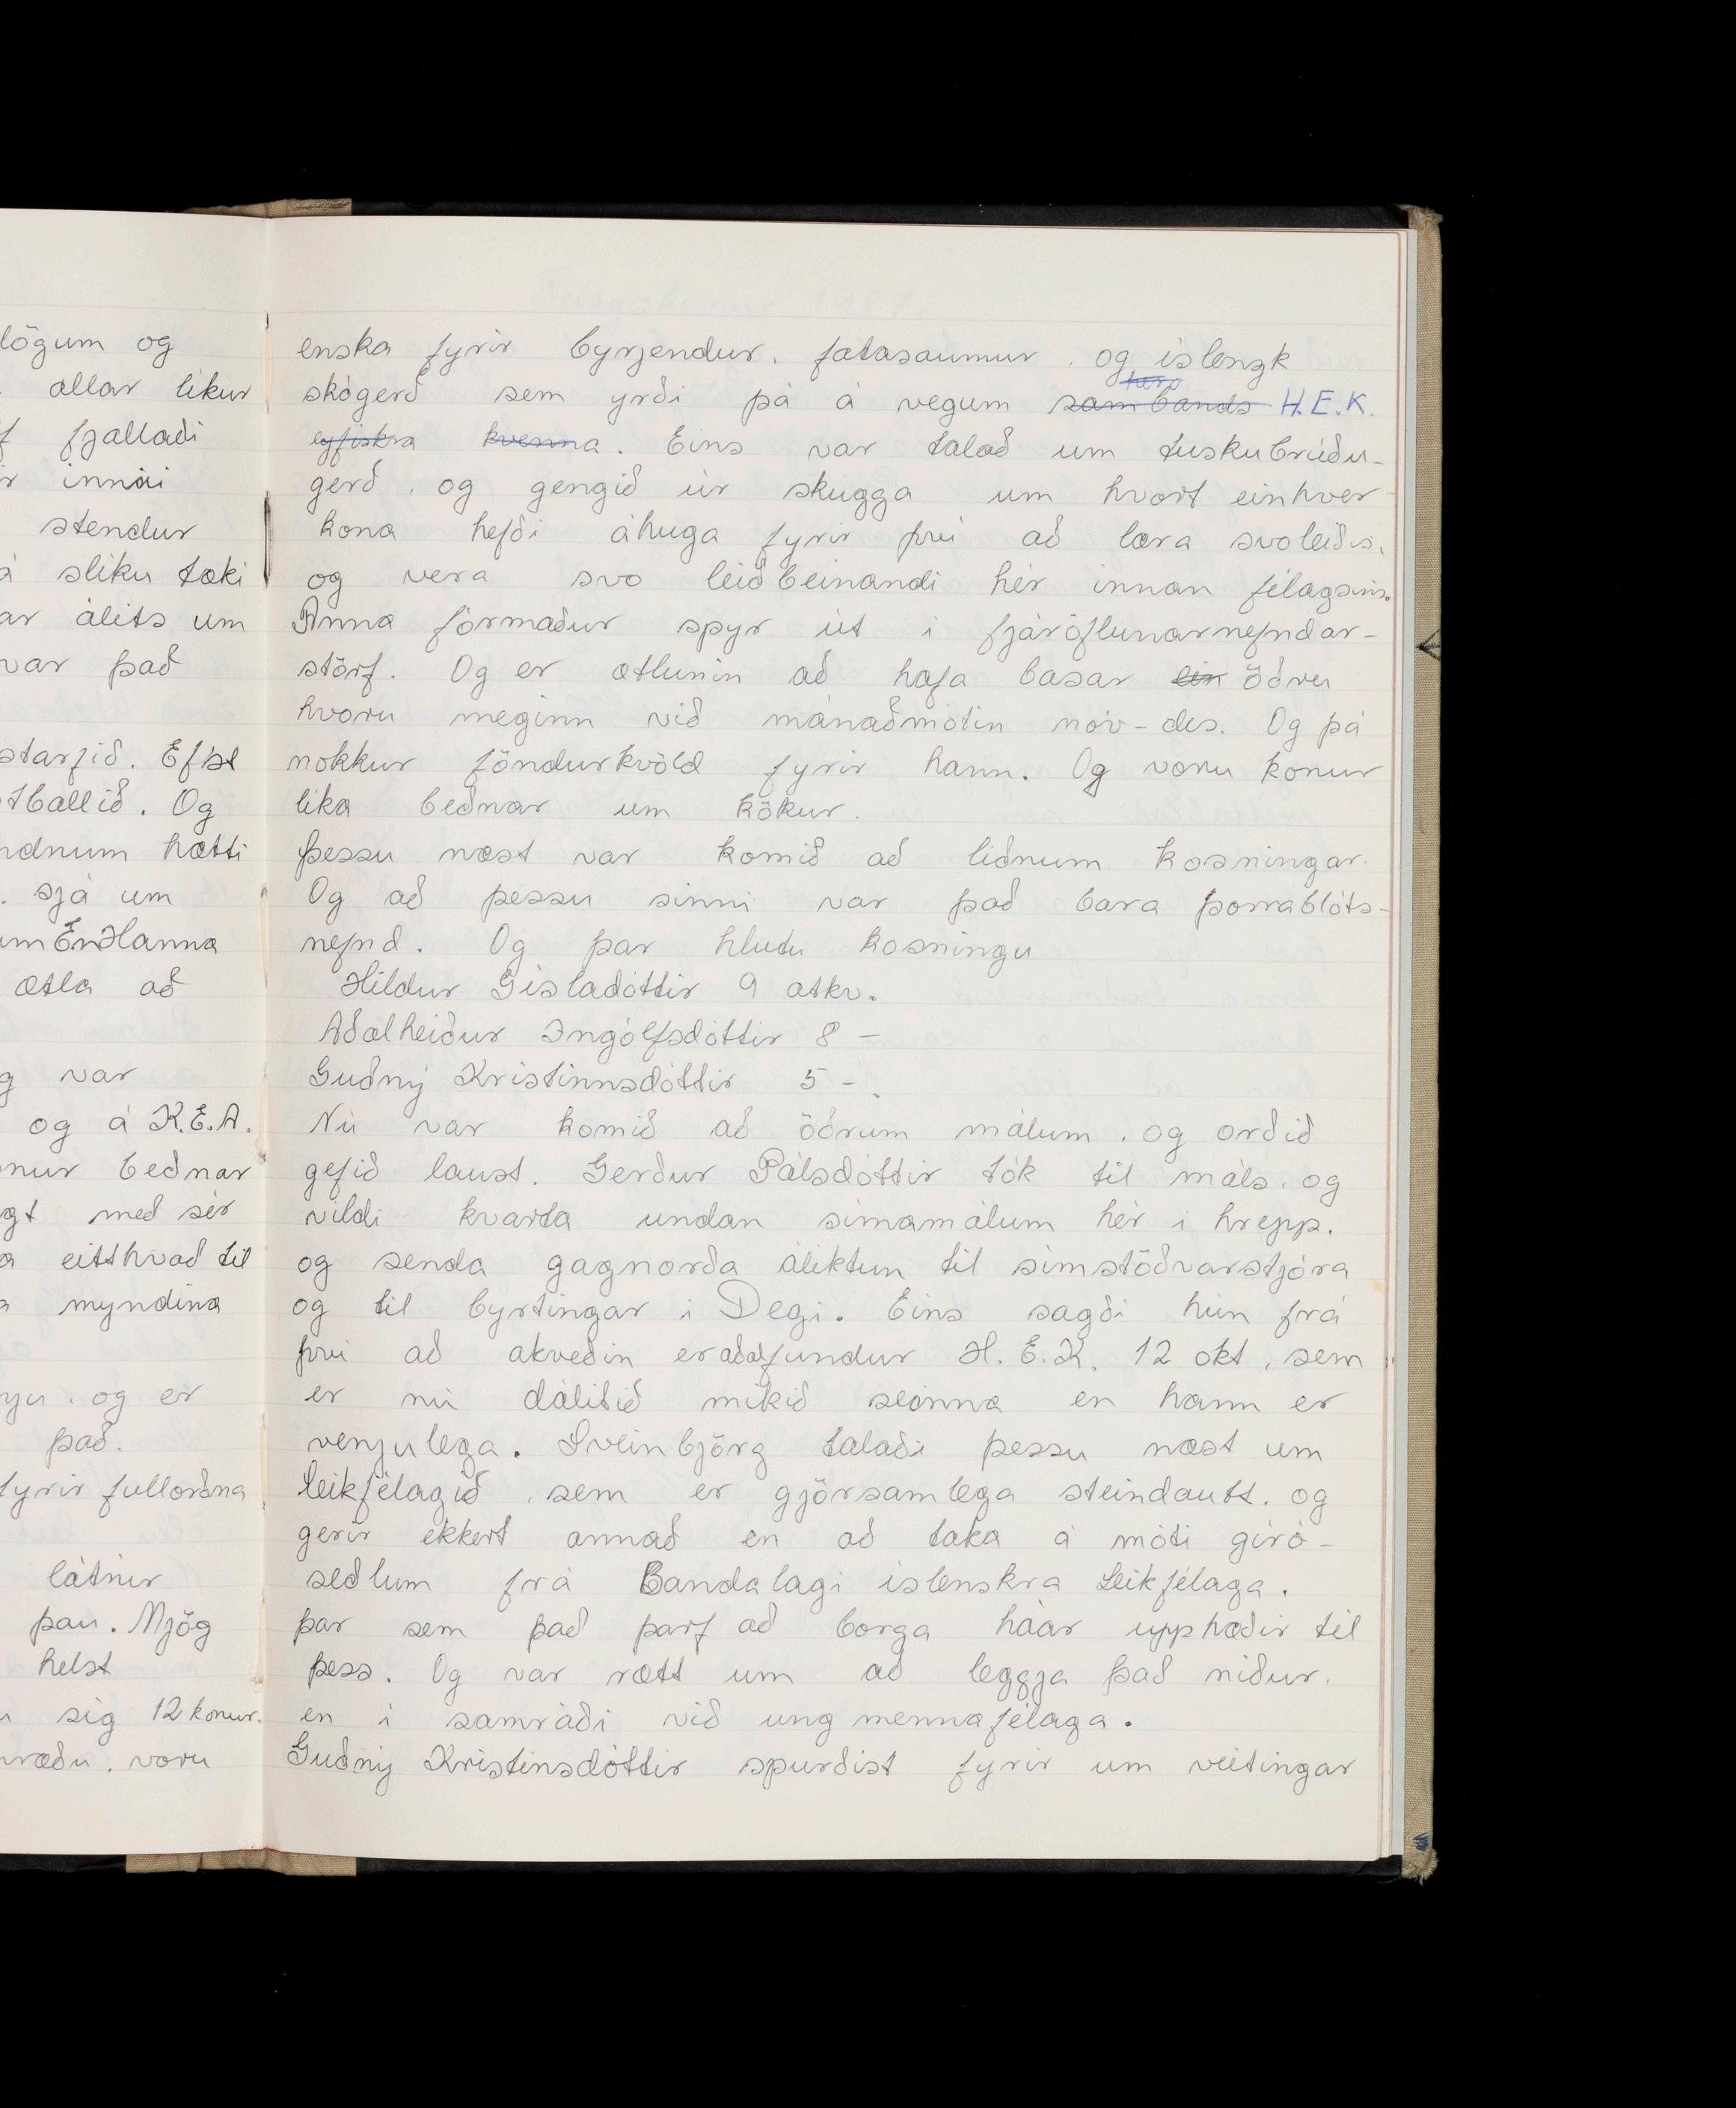 lögum og
allar líkur
fjallaði
innái
stendur
á slíku tæki
ar álits um
var það
starfið. Efst
tballið. Og
ndnum hætti
. sjá um
um En Hanna
ætla að
g var
og á K.E.A.
onur beðnar
gt með sér
a eitthvað til
a myndina
yju. og er
það.
fyrir fullorðna
látnir
þau. Mjög
helst
sig 12 konur.
ræðu. voru
enska fyrir byrjendur. fatasaumur. og íslenzk
skógerð sem yrði þá á vegum sambands H.E.K.
eyfiskra kvenna. Eins var talað um tuskubrúðu-
gerð. og gengið úr skugga um hvort einhver
kona hefði áhuga fyrir því að læra svoleiðis.
og vera svo leiðbeinandi hér innan félagsins.
Anna formaður spyr út í fjáröflunarnefndar-
störf. Og er ætlunin að hafa basar ein öðru
hvoru meginn við mánaðmótin nóv-des. Og þá
nokkur föndurkvöld fyrir hann. Og voru konur
líka beðnar um kökur.
Þessu næst var komið að liðnum kosningar.
Og að þessu sinni var það bara þorrablóts-
nefnd. Og þar hlutu kosningu
Hildur Gísladóttir 9 atkv.
Aðalheiður Ingólfsdóttir 8 -
Guðný Kristinnsdóttir 5 -.
Nú var komið að öðrum málum. og orðið
gefið laust. Gerður Pálsdóttir tók til máls. og
vildi kvarta undan símamálum hér í hrepp.
og senda gagnorða áliktun til símstöðvarstjóra
og til byrtingar í Degi. Eins sagði hún frá
því að akveðin er aðalfundur H.E.K. 12 okt. sem
er nú dálítið mikið seinna en hann er
venjulega. Sveinbjörg talaði þessu næst um
leikfélagið. sem er gjörsamlega steindautt. og
gerir ekkert annað en að taka á móti gíró-
seðlum frá Bandalagi íslenskra Leikfélaga.
þar sem það þarf að borga háar upphæðir til
þess. Og var rætt um að leggja það niður.
en í samráði við ungmennafélaga.
Guðný Kristinsdóttir spurðist fyrir um veitingar